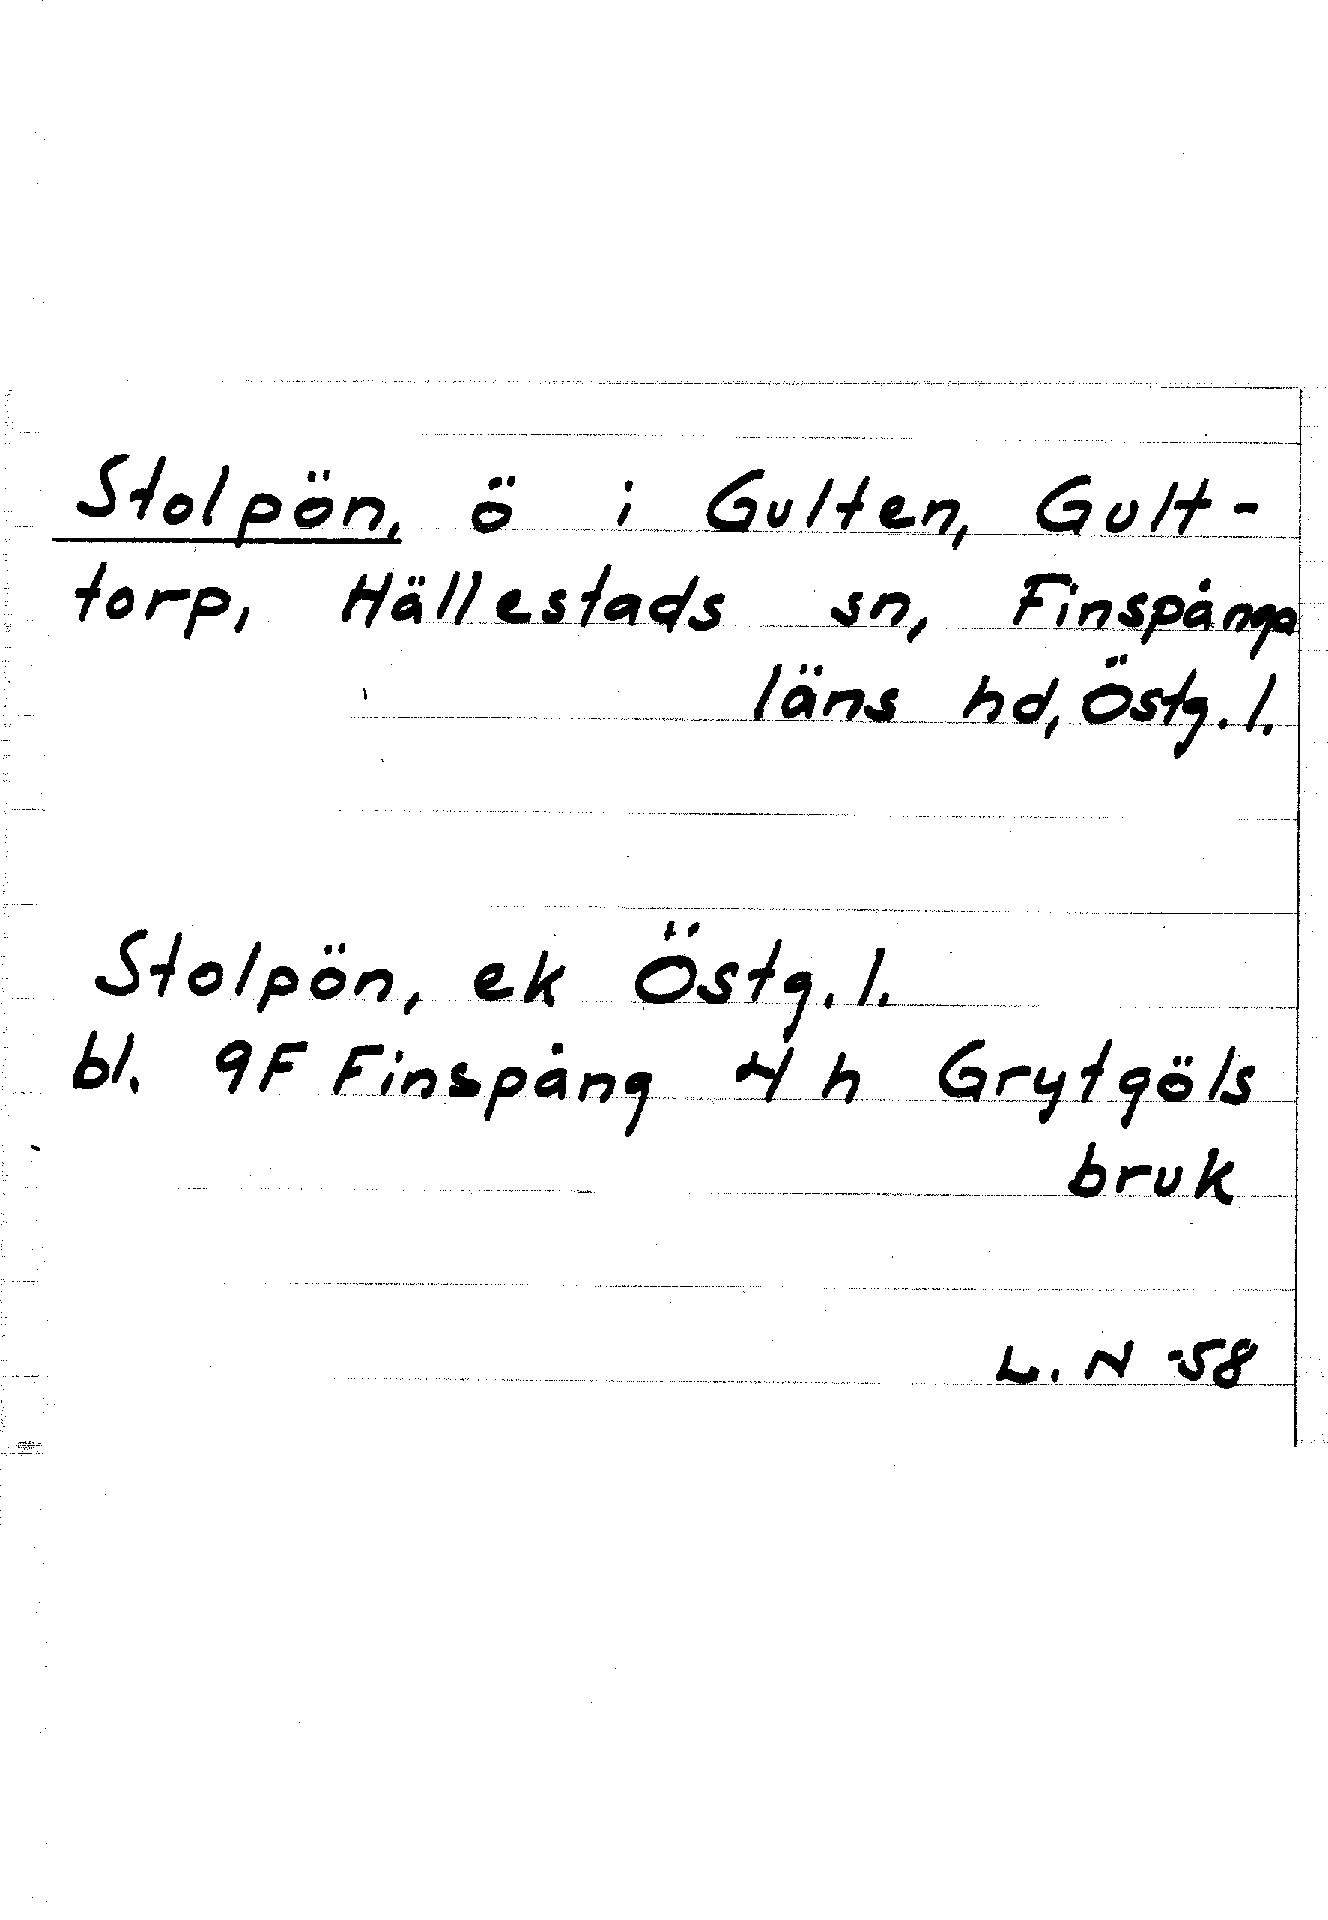 Stolpön, ö i Gulten, Gult-
torp, Hällestads sn, Finspånga
läns hd, Östg. l.
Stolpön, ek Östg. l.
bl. 9F Finspång 4 h Grytgöls
bruk
L. N -58